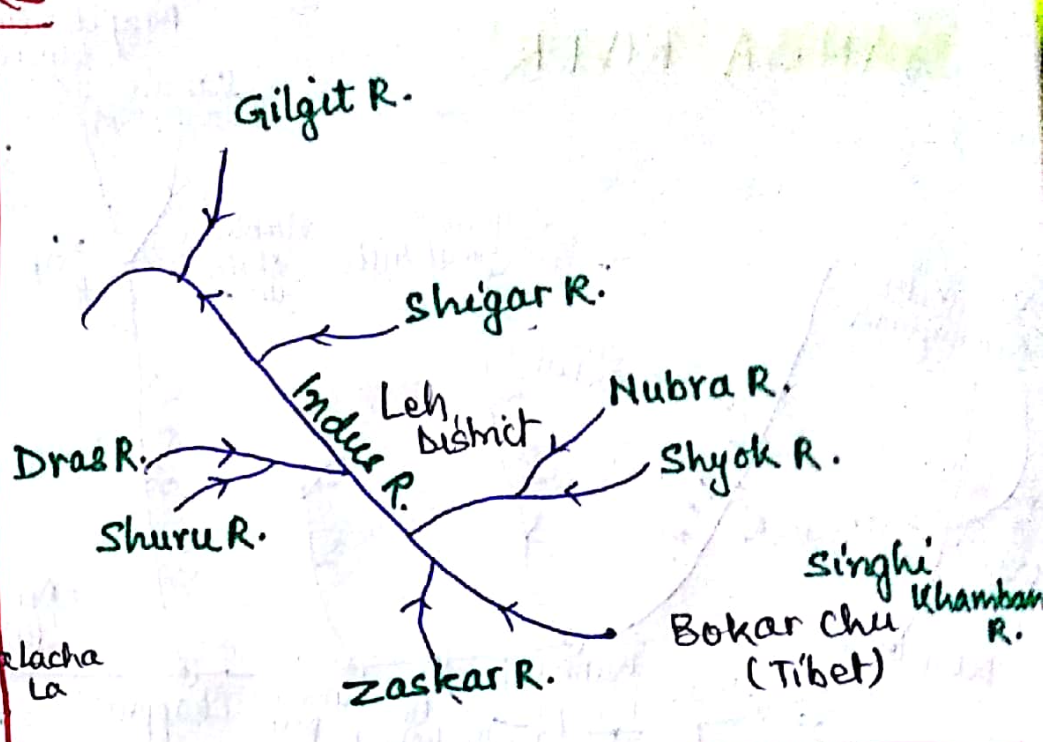 Gilgit R.
Shigar R.
Indus R.
Leh
District
Nubra R.
Shyok R.
Dras R.
Shuru R.
Singhi
Khamban
R.
Bokar Chu
(Tibet)
Zaskar R.
lacha
La